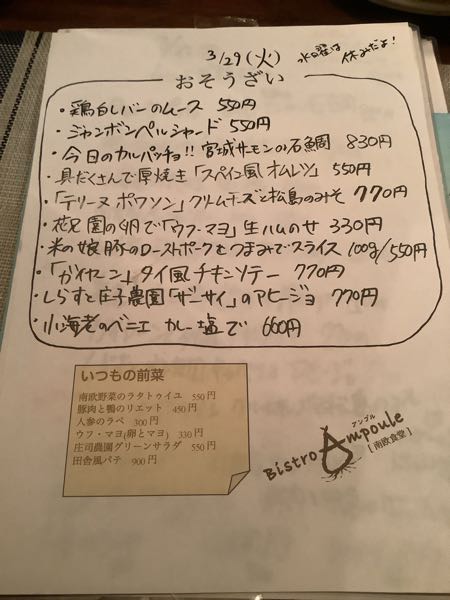 3/29(火) 水曜は休みだよ!
おそうざい
・鶏白レバーのムース 550円
・ジャンボンペルシャード 550円
・今日のカルパッチョ!! 宮城サーモンor石鯛 830円
・具だくさんで厚焼き「スペイン風オムレツ」 550円
・「テリーヌ ポワソン」クリームチーズと松島のみそ 770円
・花兄園の卵で「ウフ・マヨ」生ハムのせ 330円
・米の娘豚のローストポークをつまみでスライス 100g/550円
・「ガイヤーン」タイ風チキンソテー 770円
・しらすと庄子農園「ザーサイ」のアヒージョ 770円
・小海老のベニエ カレー塩で 660円
いつもの前菜
南欧野菜のラタトゥイユ 550円
豚肉と鴨のリエット 450円
人参のラペ 300円
ウフ・マヨ(卵とマヨ) 330円
庄司農園グリーンサラダ 550円
田舎風パテ 900円
アンプル
Bistro Ampoule
[南欧食堂]